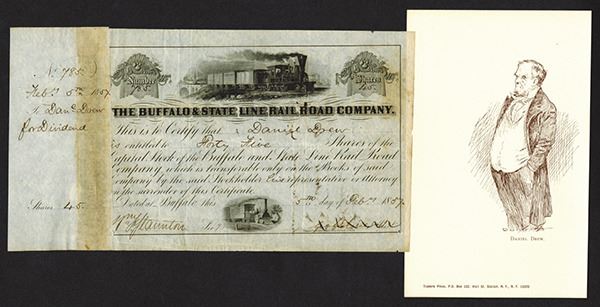 No. 785.
Feby 5th 1857
To Danl Drew
for Dividend
Shares 45
Number
785.
Shares
45.
THE BUFFALO & STATE LINE RAIL ROAD COMPANY.
This is to Certify that Daniel Drew
is entitled to Forty Five Shares of the
Capital Stock of the Buffalo and State Line Rail Road
Company, which is transferable only on the Books of said
Company by the said Stockholder his representative or Attorney
on the surrender of this Certificate.
Dated at Buffalo this 5th day of Feby 1857.
DANIEL DREW.